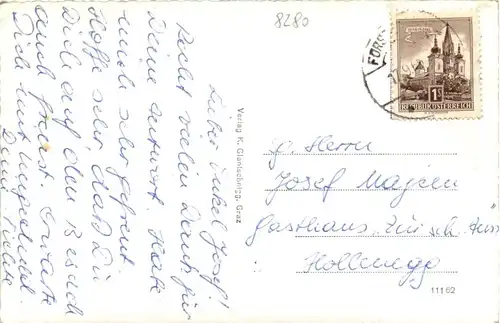 8280
Lieber Onkel Josef!
Recht vielen Dank für
Deine Antwort. Habe
mich sehr gefreut.
Hoffe sehr, daß Du
Dich auf den Besuch
auch freust. Erwarte
Dich mit Ungeduld
Deine
Verlag K. Glantschnigg, Graz
1 S
REPUBLIK ÖSTERREICH
g. Herrn
Josef
Gasthaus
Hollenegg
111 62